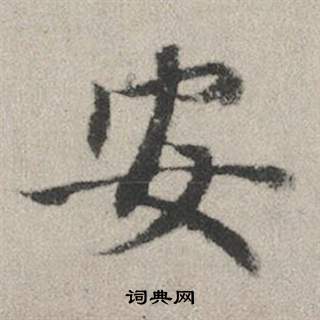 安
词典网